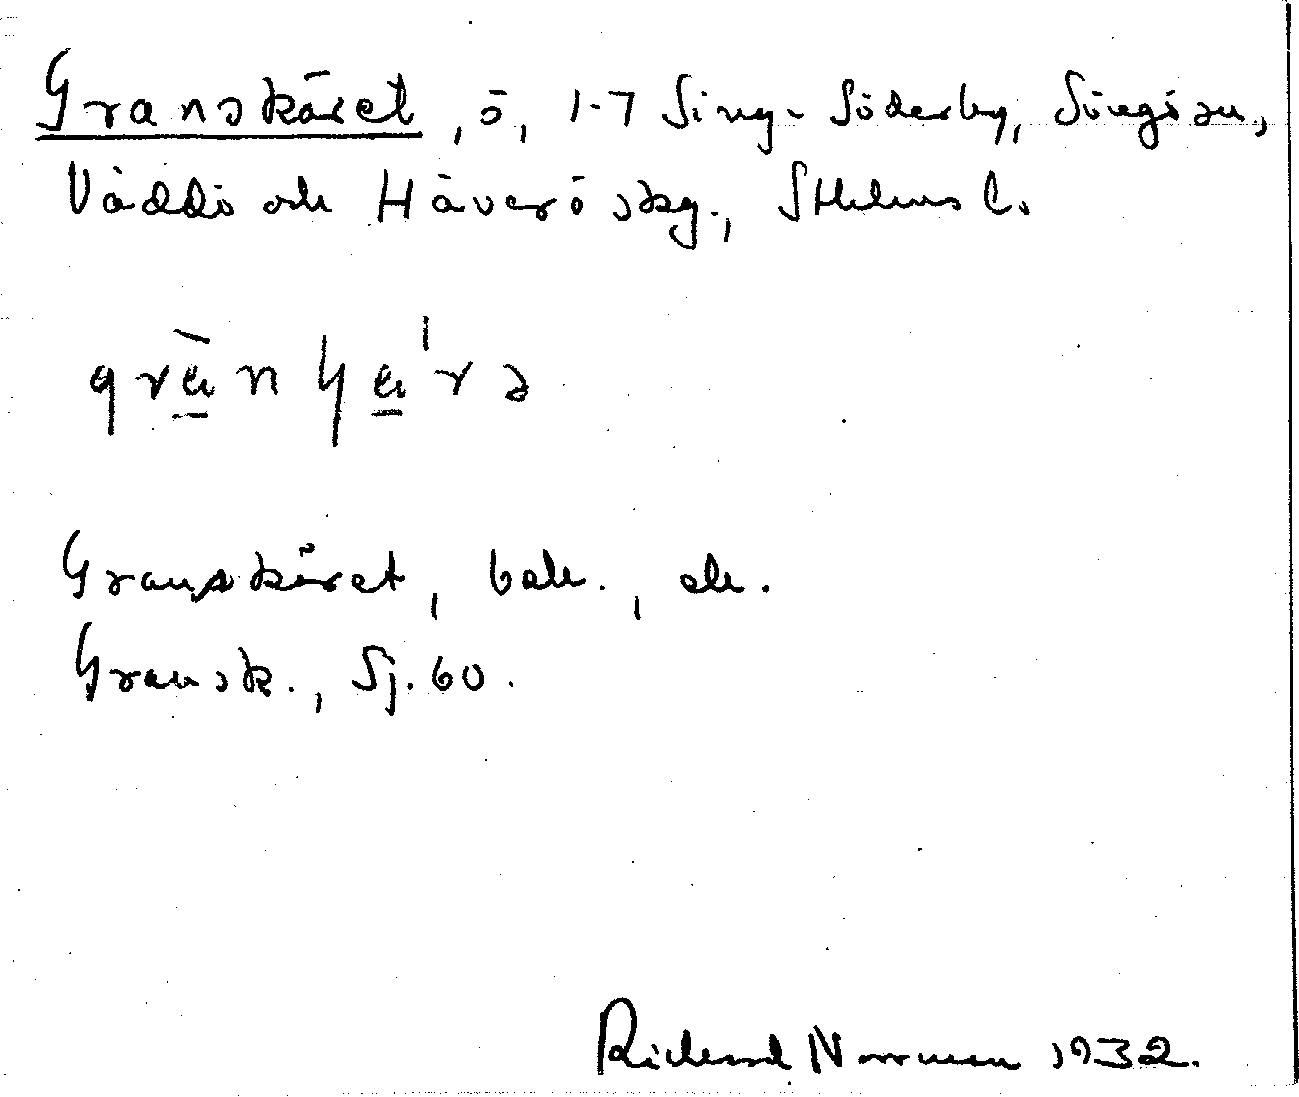 Granskäret, ö, 1-7 Sing-Söderby, Singö sn,
Väddö och Häverö skg., Sthlms l.
Granskäret, bok., ek.
Gransk., Sj. 60.
Richard Norrman 1932.